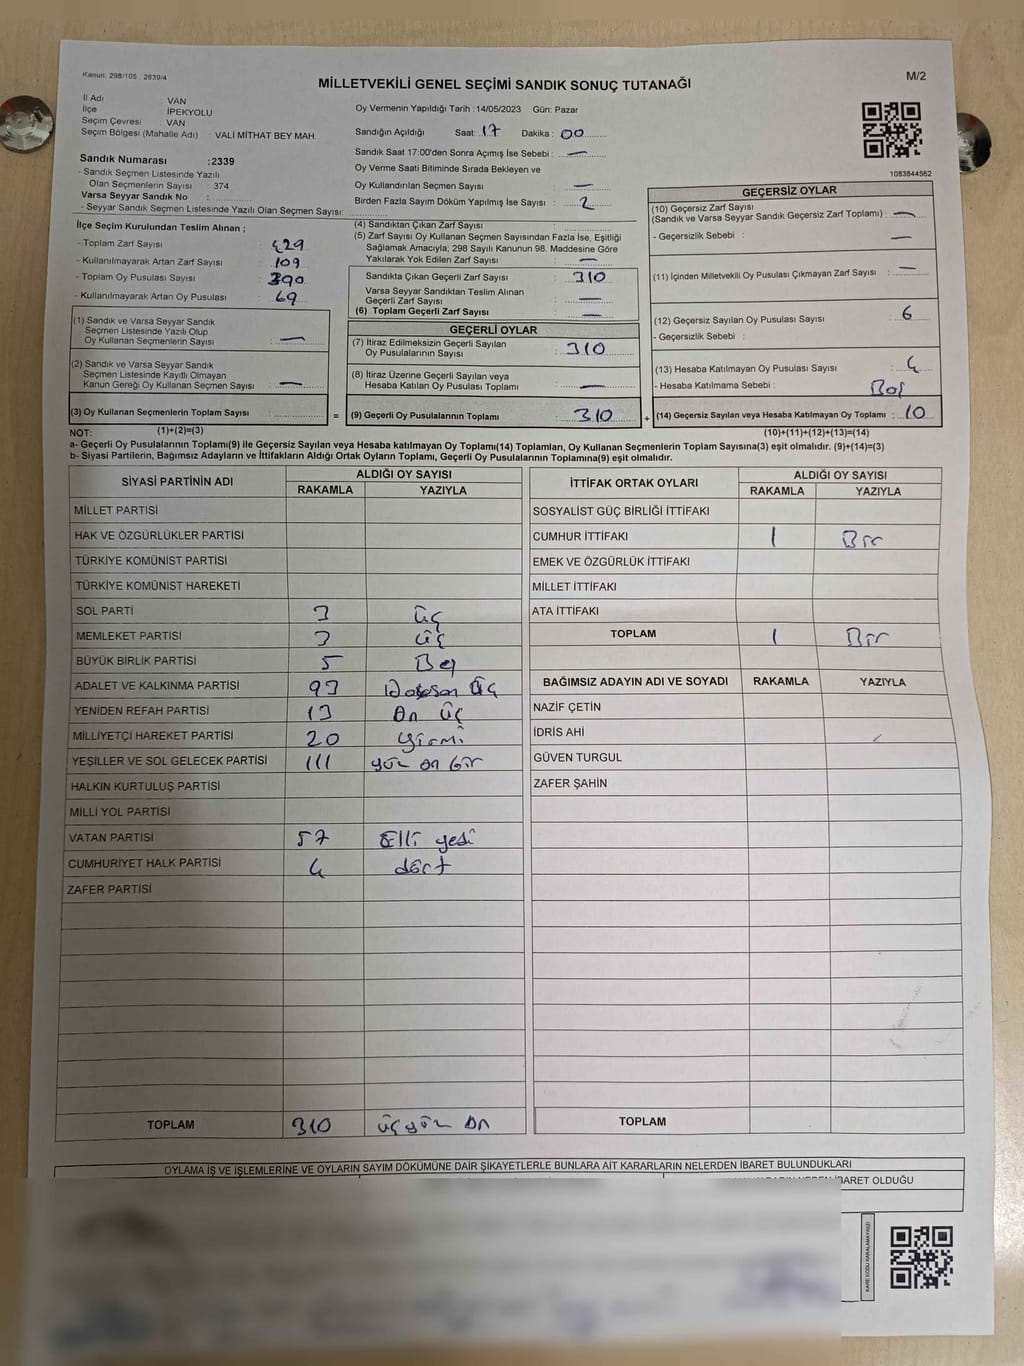 Kanun: 298/105 , 2839/4
MİLLETVEKİLİ GENEL SEÇİMİ SANDIK SONUÇ TUTANAĞI
M/2
İl Adı : VAN
İlçe : İPEKYOLU
Seçim Çevresi : VAN
Seçim Bölgesi (Mahalle Adı) : VALİ MİTHAT BEY MAH.
Sandık Numarası :2339
- Sandık Seçmen Listesinde Yazılı
Olan Seçmenlerin Sayısı : 374
Varsa Seyyar Sandık No :
- Seyyar Sandık Seçmen Listesinde Yazılı Olan Seçmen Sayısı:
İlçe Seçim Kurulundan Teslim Alınan ;
- Toplam Zarf Sayısı : 429
- Kullanılmayarak Artan Zarf Sayısı : 109
- Toplam Oy Pusulası Sayısı : 390
- Kullanılmayarak Artan Oy Pusulası : 69
(1) Sandık ve Varsa Seyyar Sandık
Seçmen Listesinde Yazılı Olup
Oy Kullanan Seçmenlerin Sayısı : —
(2) Sandık ve Varsa Seyyar Sandık
Seçmen Listesinde Kayıtlı Olmayan
Kanun Gereği Oy Kullanan Seçmen Sayısı : —
(3) Oy Kullanan Seçmenlerin Toplam Sayısı :
Oy Vermenin Yapıldığı Tarih : 14/05/2023 Gün: Pazar
Sandığın Açıldığı Saat: 17 Dakika : 00
Sandık Saat 17:00'den Sonra Açımış İse Sebebi : —
Oy Verme Saati Bitiminde Sırada Bekleyen ve
Oy Kullandırılan Seçmen Sayısı : —
Birden Fazla Sayım Döküm Yapılmış İse Sayısı : 2
(4) Sandıktan Çıkan Zarf Sayısı :
(5) Zarf Sayısı Oy Kullanan Seçmen Sayısından Fazla İse, Eşitliği
Sağlamak Amacıyla; 298 Sayılı Kanunun 98. Maddesine Göre
Yakılarak Yok Edilen Zarf Sayısı : —
Sandıkta Çıkan Geçerli Zarf Sayısı : 310
Varsa Seyyar Sandıktan Teslim Alınan
Geçerli Zarf Sayısı : —
(6) Toplam Geçerli Zarf Sayısı : —
GEÇERLİ OYLAR
(7) İtiraz Edilmeksizin Geçerli Sayılan
Oy Pusulalarının Sayısı : 310
(8) İtiraz Üzerine Geçerli Sayılan veya
Hesaba Katılan Oy Pusulası Toplamı : —
= (9) Geçerli Oy Pusulalarının Toplamı : 310
1083844562
GEÇERSİZ OYLAR
(10) Geçersiz Zarf Sayısı
(Sandık ve Varsa Seyyar Sandık Geçersiz Zarf Toplamı) : —
- Geçersizlik Sebebi : —
(11) İçinden Milletvekili Oy Pusulası Çıkmayan Zarf Sayısı : —
(12) Geçersiz Sayılan Oy Pusulası Sayısı : 6
- Geçersizlik Sebebi :
(13) Hesaba Katılmayan Oy Pusulası Sayısı : 4
- Hesaba Katılmama Sebebi : Boş
+ (14) Geçersiz Sayılan veya Hesaba Katılmayan Oy Toplamı : 10
NOT: (1)+(2)=(3) (10)+(11)+(12)+(13)=(14)
a- Geçerli Oy Pusulalarının Toplamı(9) ile Geçersiz Sayılan veya Hesaba katılmayan Oy Toplamı(14) Toplamları, Oy Kullanan Seçmenlerin Toplam Sayısına(3) eşit olmalıdır. (9)+(14)=(3)
b- Siyasi Partilerin, Bağımsız Adayların ve İttifakların Aldığı Ortak Oyların Toplamı, Geçerli Oy Pusulalarının Toplamına(9) eşit olmalıdır.
SİYASİ PARTİNİN ADI ALDIĞI OY SAYISI
RAKAMLA YAZIYLA
MİLLET PARTİSİ
HAK VE ÖZGÜRLÜKLER PARTİSİ
TÜRKİYE KOMÜNİST PARTİSİ
TÜRKİYE KOMÜNİST HAREKETİ
SOL PARTİ 3 üç
MEMLEKET PARTİSİ 3 üç
BÜYÜK BİRLİK PARTİSİ 5 Beş
ADALET VE KALKINMA PARTİSİ 93 Doksan üç
YENİDEN REFAH PARTİSİ 13 On üç
MİLLİYETÇİ HAREKET PARTİSİ 20 yirmi
YEŞİLLER VE SOL GELECEK PARTİSİ 111 yüz on bir
HALKIN KURTULUŞ PARTİSİ
MİLLİ YOL PARTİSİ
VATAN PARTİSİ 57 Elli yedi
CUMHURİYET HALK PARTİSİ 4 dört
ZAFER PARTİSİ
TOPLAM 310 üçyüz on
İTTİFAK ORTAK OYLARI ALDIĞI OY SAYISI
RAKAMLA YAZIYLA
SOSYALİST GÜÇ BİRLİĞİ İTTİFAKI
CUMHUR İTTİFAKI 1 Bir
EMEK VE ÖZGÜRLÜK İTTİFAKI
MİLLET İTTİFAKI
ATA İTTİFAKI
TOPLAM 1 Bir
BAĞIMSIZ ADAYIN ADI VE SOYADI RAKAMLA YAZIYLA
NAZİF ÇETİN
İDRİS AHİ
GÜVEN TURGUL
ZAFER ŞAHİN
TOPLAM
OYLAMA İŞ VE İŞLEMLERİNE VE OYLARIN SAYIM DÖKÜMÜNE DAİR ŞİKAYETLERLE BUNLARA AİT KARARLARIN NELERDEN İBARET BULUNDUKLARI
İBARET OLDUĞU
KARE KODU KARALAMAYINIZ!